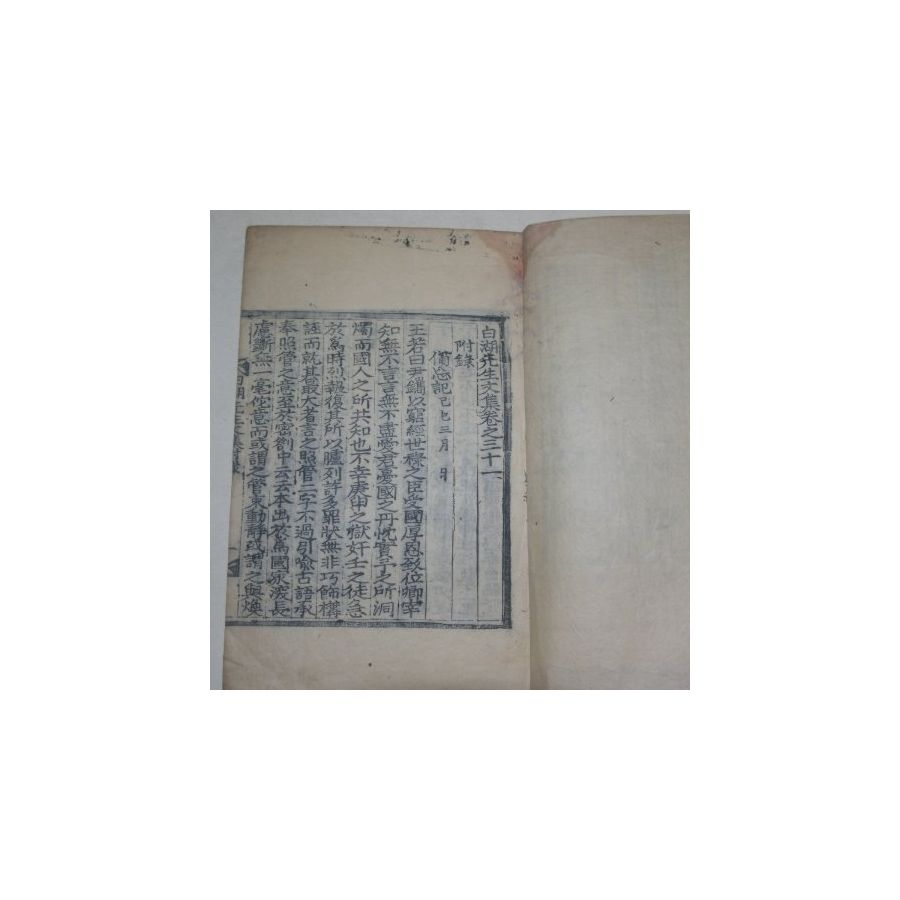 白湖先生文集卷之三十一
附錄
備忘記己巳三月 日
王若曰尹鑴以窮經世祿之臣受國厚恩致位卿宰
知無不言言無不盡愛君憂國之丹忱實予之所洞
燭而國人之所共知也不幸庚申之獄奸壬之徒急
於爲時烈報復其所以臚列許多罪狀無非巧飾構
誣而就其最大者言之照管二字不過引喩古語承
奉照管之意至於密劄中云云本出於爲國家深長
慮斷無一毫他意而或謂之管束動靜或謂之與煥